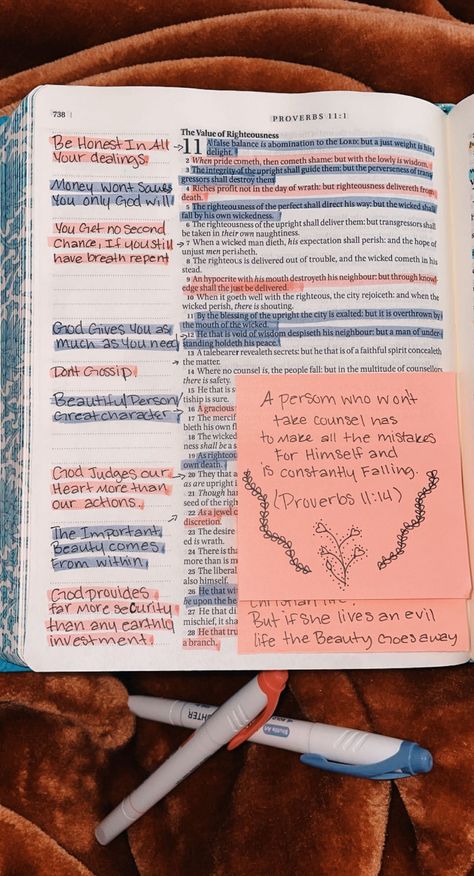 738
PROVERBS 11:1
Be Honest In All
Your dealings.
Money wont Saves
You only God will
You Get no Second
Chance, If you still
have breath repent
God Gives You as
much as You need
Dont Gossip.
Beautiful Person/
Great character
God Judges our
Heart More than
our actions.
The Important
Beauty comes
From within.
God provides
far More security
than any earthly
investment.
The Value of Righteousness
11 A false balance is abomination to the LORD: but a just weight is his
delight.
2 When pride cometh, then cometh shame: but with the lowly is wisdom.
3 The integrity of the upright shall guide them: but the perverseness of trans
gressors shall destroy them.
4 Riches profit not in the day of wrath: but righteousness delivereth from
death.
5 The righteousness of the perfect shall direct his way: but the wicked shall
fall by his own wickedness.
6 The righteousness of the upright shall deliver them: but transgressors shall
be taken in their own naughtiness.
7 When a wicked man dieth, his expectation shall perish: and the hope of
unjust men perisheth.
8 The righteous is delivered out of trouble, and the wicked cometh in his
stead.
9 An hypocrite with his mouth destroyeth his neighbour: but through know
edge shall the just be delivered.
10 When it goeth well with the righteous, the city rejoiceth: and when the
wicked perish, there is shouting.
11 By the blessing of the upright the city is exalted: but it is overthrown by
the mouth of the wicked.
12 He that is void of wisdom despiseth his neighbour: but a man of under
standing holdeth his peace.
13 A talebearer revealeth secrets: but he that is of a faithful spirit concealeth
the matter.
14 Where no counsel is, the people fall: but in the multitude of counsellors
there is safety.
15 He that is
tiship is sure.
16 A gracious
17 The mercif
bleth his own fl
18 The wicked
ness shall be a s
19 As righteous
own death.
20 They that a
as are upright i
21 Though han
seed of the right
22 As a jewel o
discretion.
23 The desire
ed is wrath.
24 There is tha
more than is m
25 The liberal
also himself.
26 He that wi
be upon the be
27 He that di
mischief, it sha
28 He that tru
a branch.
A person who won't
take counsel has
to Make all the mistakes
For Himself and
is constantly Falling.
(Proverbs 11:14)
But if she lives an evil
life the Beauty Goes away